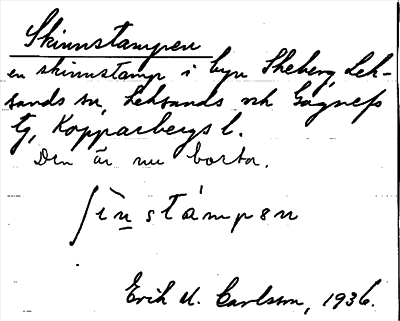 Skinnstampen
en skinnstamp i byn Skeberg, Lek-
sands sn, Leksands och Gagnefs
tg, Kopparbergs l.
Den är nu borta.
ʃìn̲stámpen
Erik M. Carlsson, 1936.